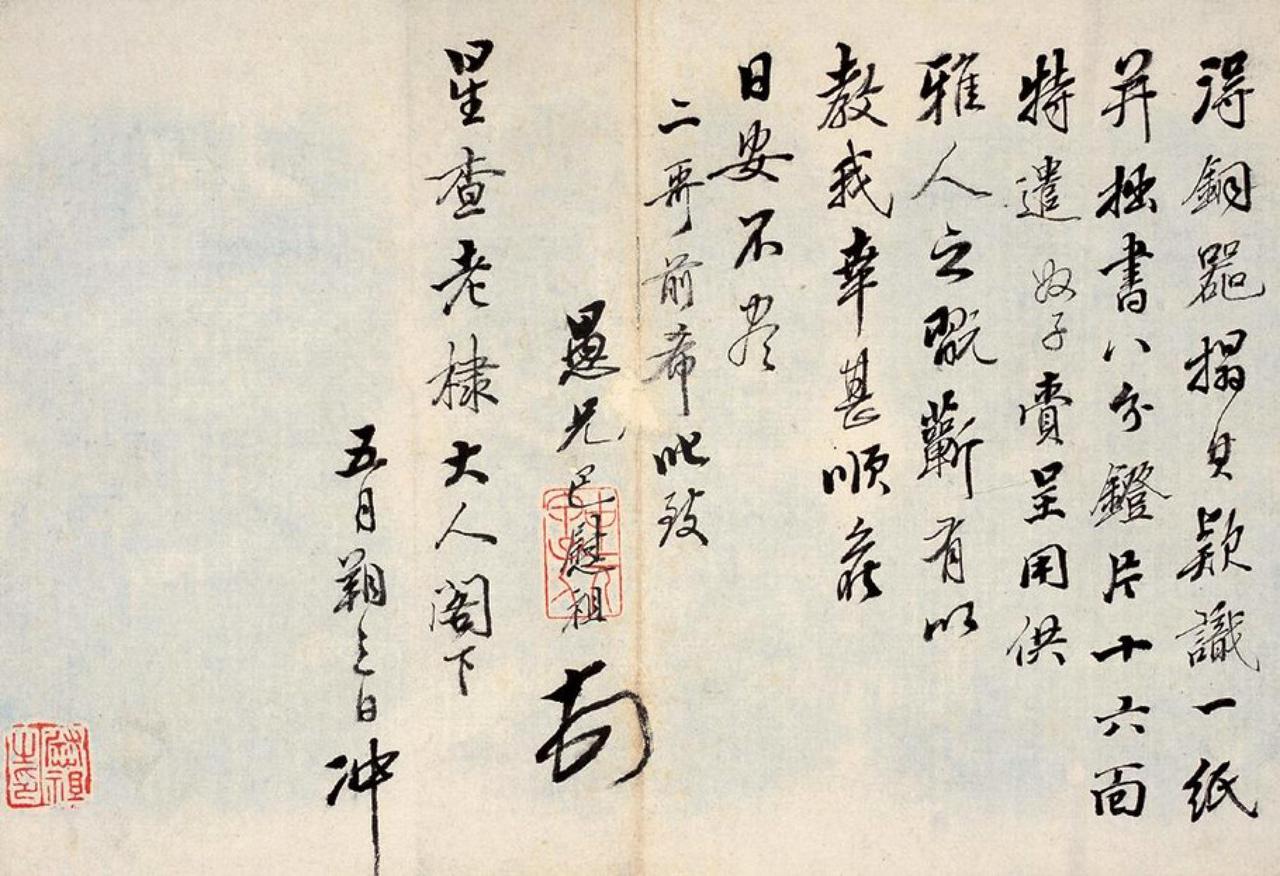 得銅器搨具款識一紙
并拙書八分鐙片十六面
特遣奴子賫呈用供
雅人之翫蘄有以
教我幸甚順叩
日安不尽
二哥前希叱致
愚兄巴慰祖
星查老棣大人閣下
五月朔之日冲
慰祖之印